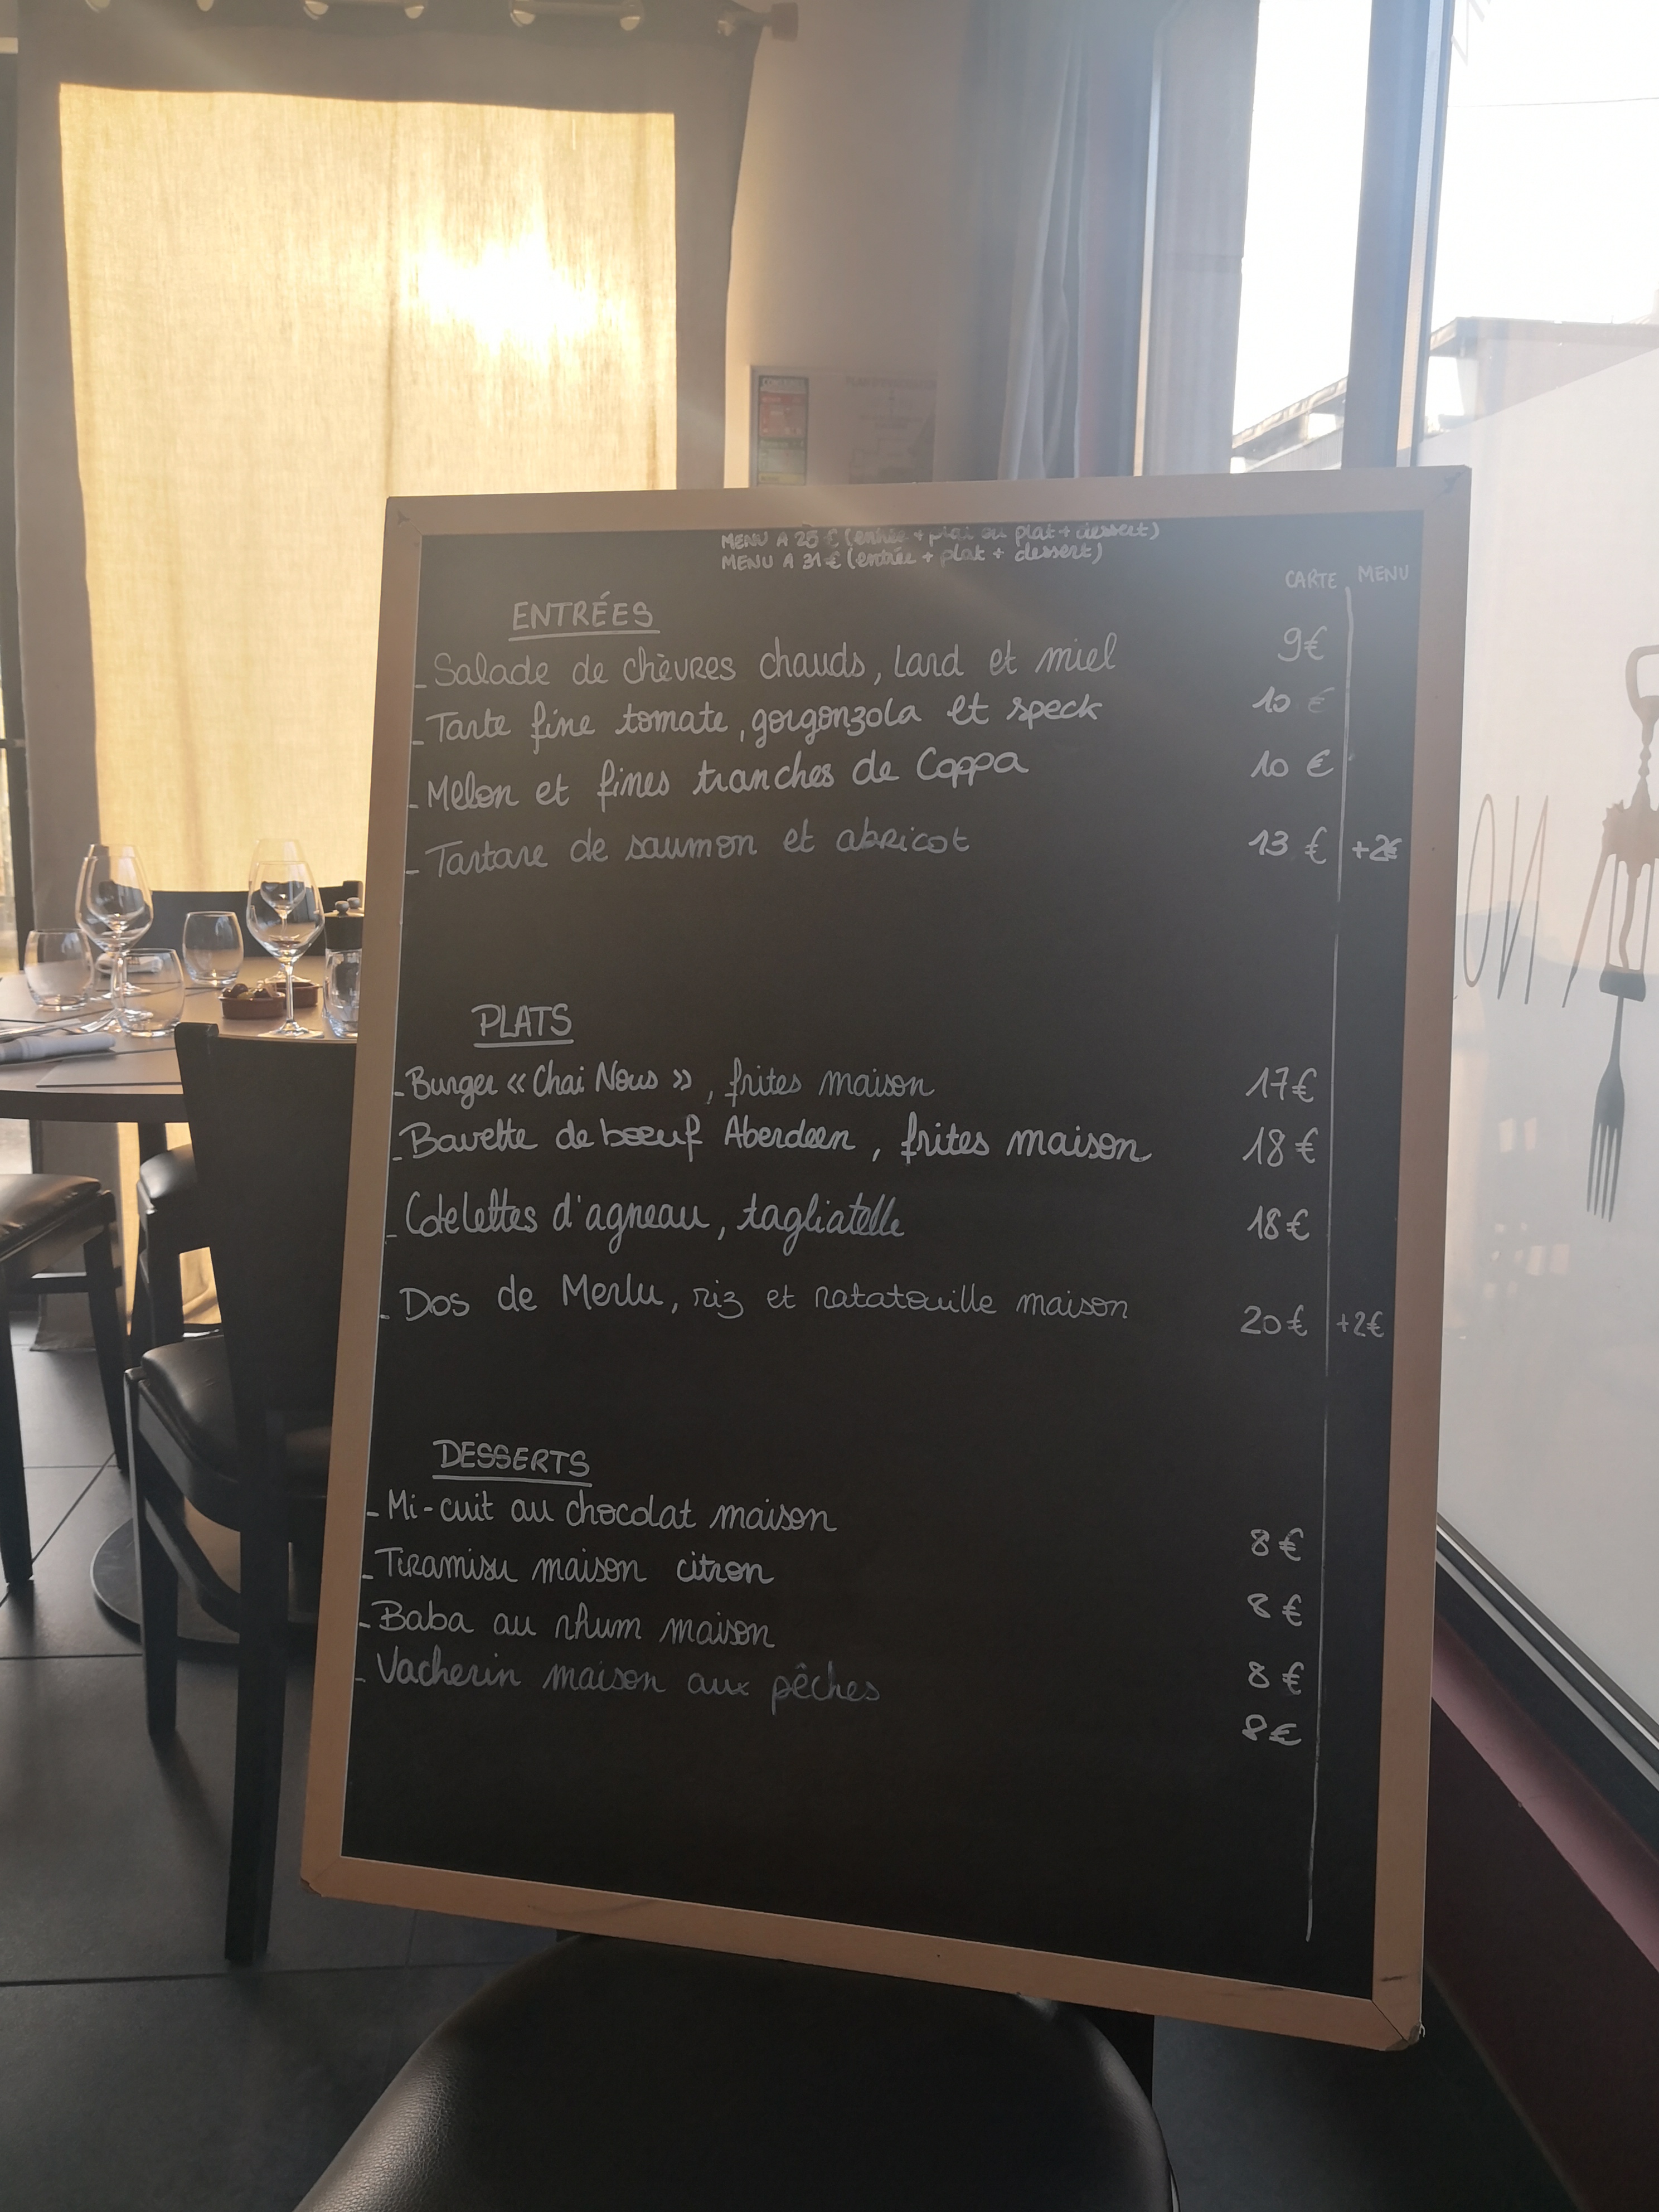 MENU A 25 € (entrée + plat ou plat + dessert)
MENU A 31 € (entrée + plat + dessert)
CARTE MENU
ENTRÉES
- Salade de chèvres chauds, Lard et miel 9€
- Tarte fine tomate, gorgonzola et speck 10 €
- Melon et fines tranches de Coppa 10 €
- Tartare de saumon et abricot 13 € +2€
PLATS
- Burger « Chai Nous », frites maison 17€
- Bavette de boeuf Aberdeen, frites maison 18€
- Cotelettes d'agneau, tagliatelle 18€
- Dos de Merlu, riz et ratatouille maison 20€ +2€
DESSERTS
- Mi-cuit au chocolat maison 8€
- Tiramisu maison citron 8€
- Baba au rhum maison 8€
- Vacherin maison aux pêches 8€